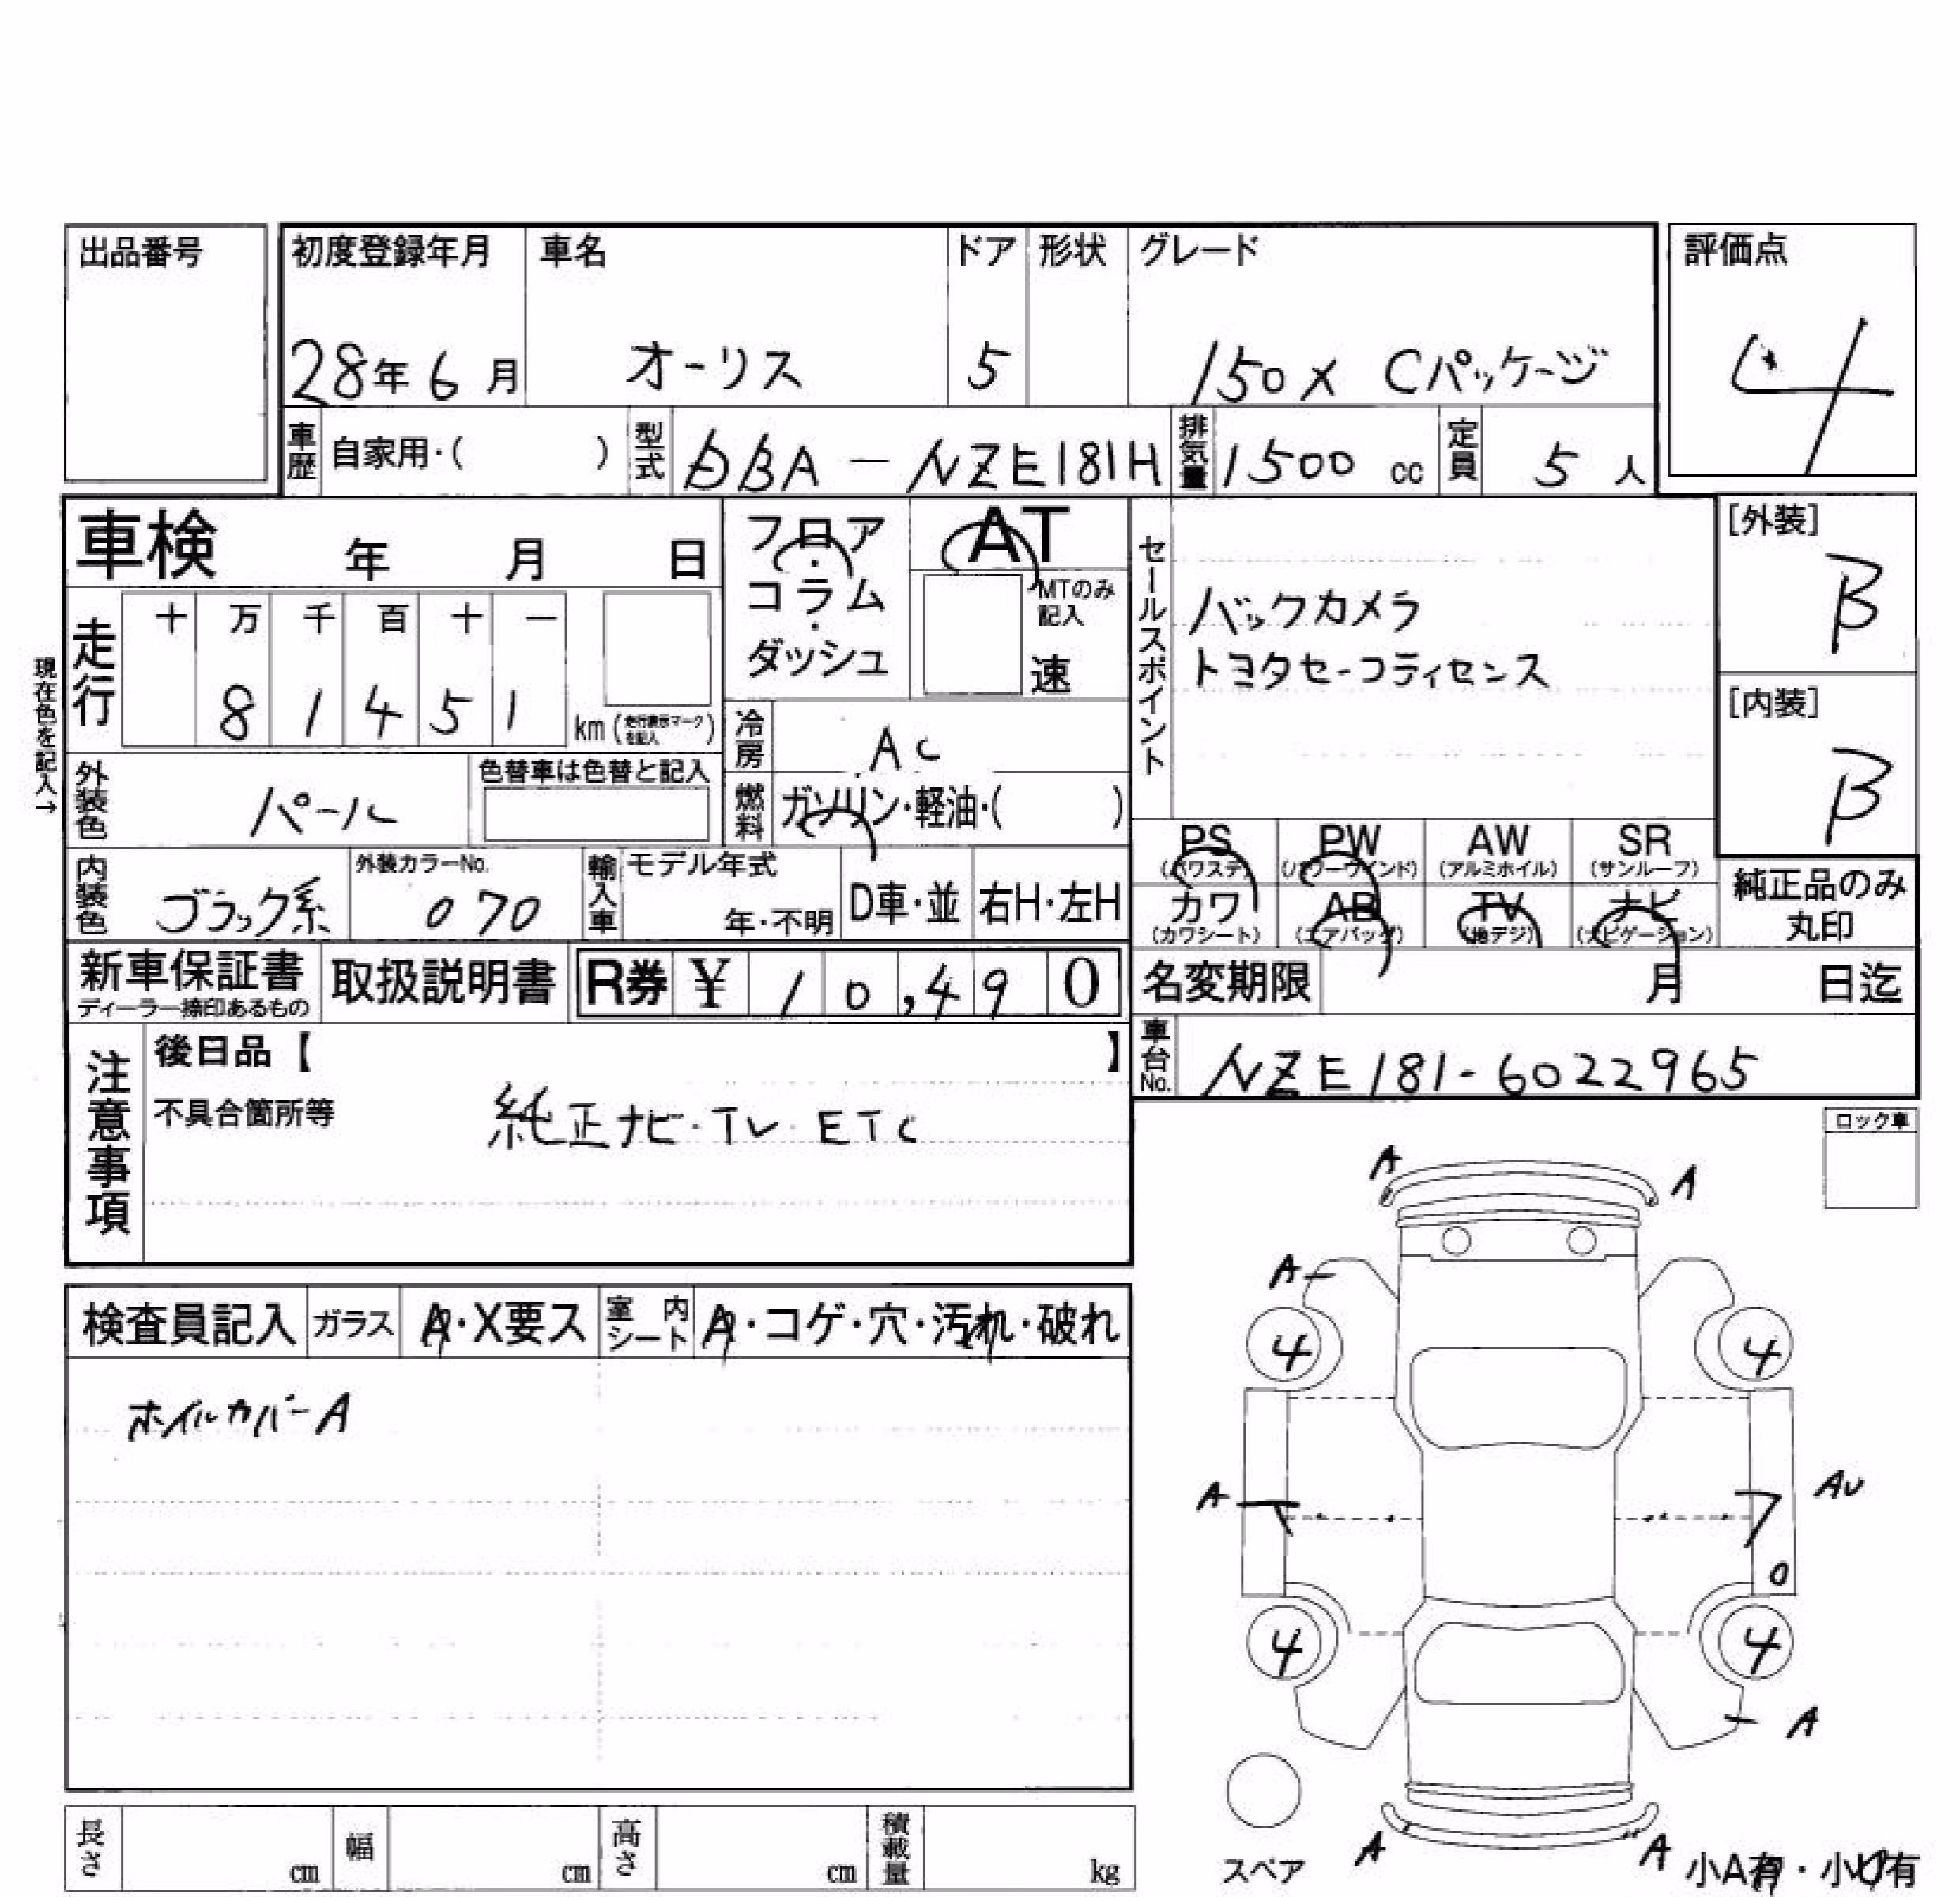 出品番号
初度登録年月 車名 ドア 形状 グレード
28年6月 オーリス 5 150X Cパッケージ
評価点
4
車歴 自家用・( ) 型式 DBA-NZE181H 排気量 1500 cc 定員 5 人
車検 年 月 日
フロア・コラム・ダッシュ
AT
MTのみ記入
速
セールスポイント
バックカメラ
トヨタセーフティセンス
[外装]
B
[内装]
B
現在色を記入→
走行 十 万 千 百 十 一
8 1 4 5 1 km (走行表示マークを記入)
冷房 AC
外装色 パール 色替車は色替と記入
燃料 ガソリン・軽油・( )
PS (パワステ) PW (パワーウインド) AW (アルミホイル) SR (サンルーフ)
カワ (カワシート) AB (エアバッグ) TV (地デジ) ナビ (ナビゲーション)
純正品のみ丸印
内装色 ブラック系 外装カラーNo. 070 輸入車 モデル年式 年・不明 D車・並 右H・左H
新車保証書 ディーラー捺印あるもの 取扱説明書 R券 ¥ 10,490
名変期限 月 日迄
車台No. NZE181-6022965
注意事項
後日品【 】
不具合箇所等 純正ナビ・TV ETC
ロック車
検査員記入 ガラス A・X要ス 室内シート A・コゲ・穴・汚れ・破れ
ホイルカバーA
A A
A
4 4
A AU
0
4 4
A
A A
スペア
小A有・小U有
長さ cm 幅 cm 高さ cm 積載量 kg